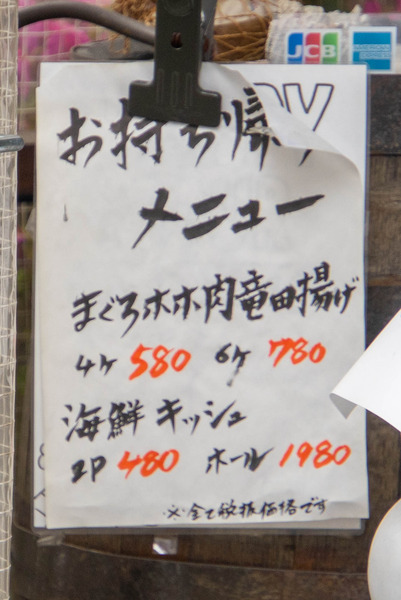 JCB
AMERICAN EXPRESS
お持ち帰り
メニュー
まぐろホホ肉竜田揚げ
4ヶ 580 6ヶ 780
海鮮キッシュ
2P 480 ホール 1980
※全て税抜価格です